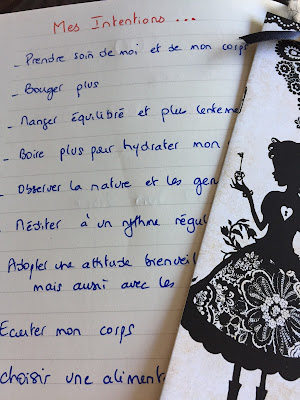 Mes Intentions ...
- Prendre soin de moi et de mon corps
- Bouger plus
- Manger équilibré et plus
- Boire plus pour hydrater mon
- Observer la nature et les gen
- Méditer à un rythme régul
Adopter une attitude bienveil
mais aussi avec les
Ecouter mon corps
choisir une aliment